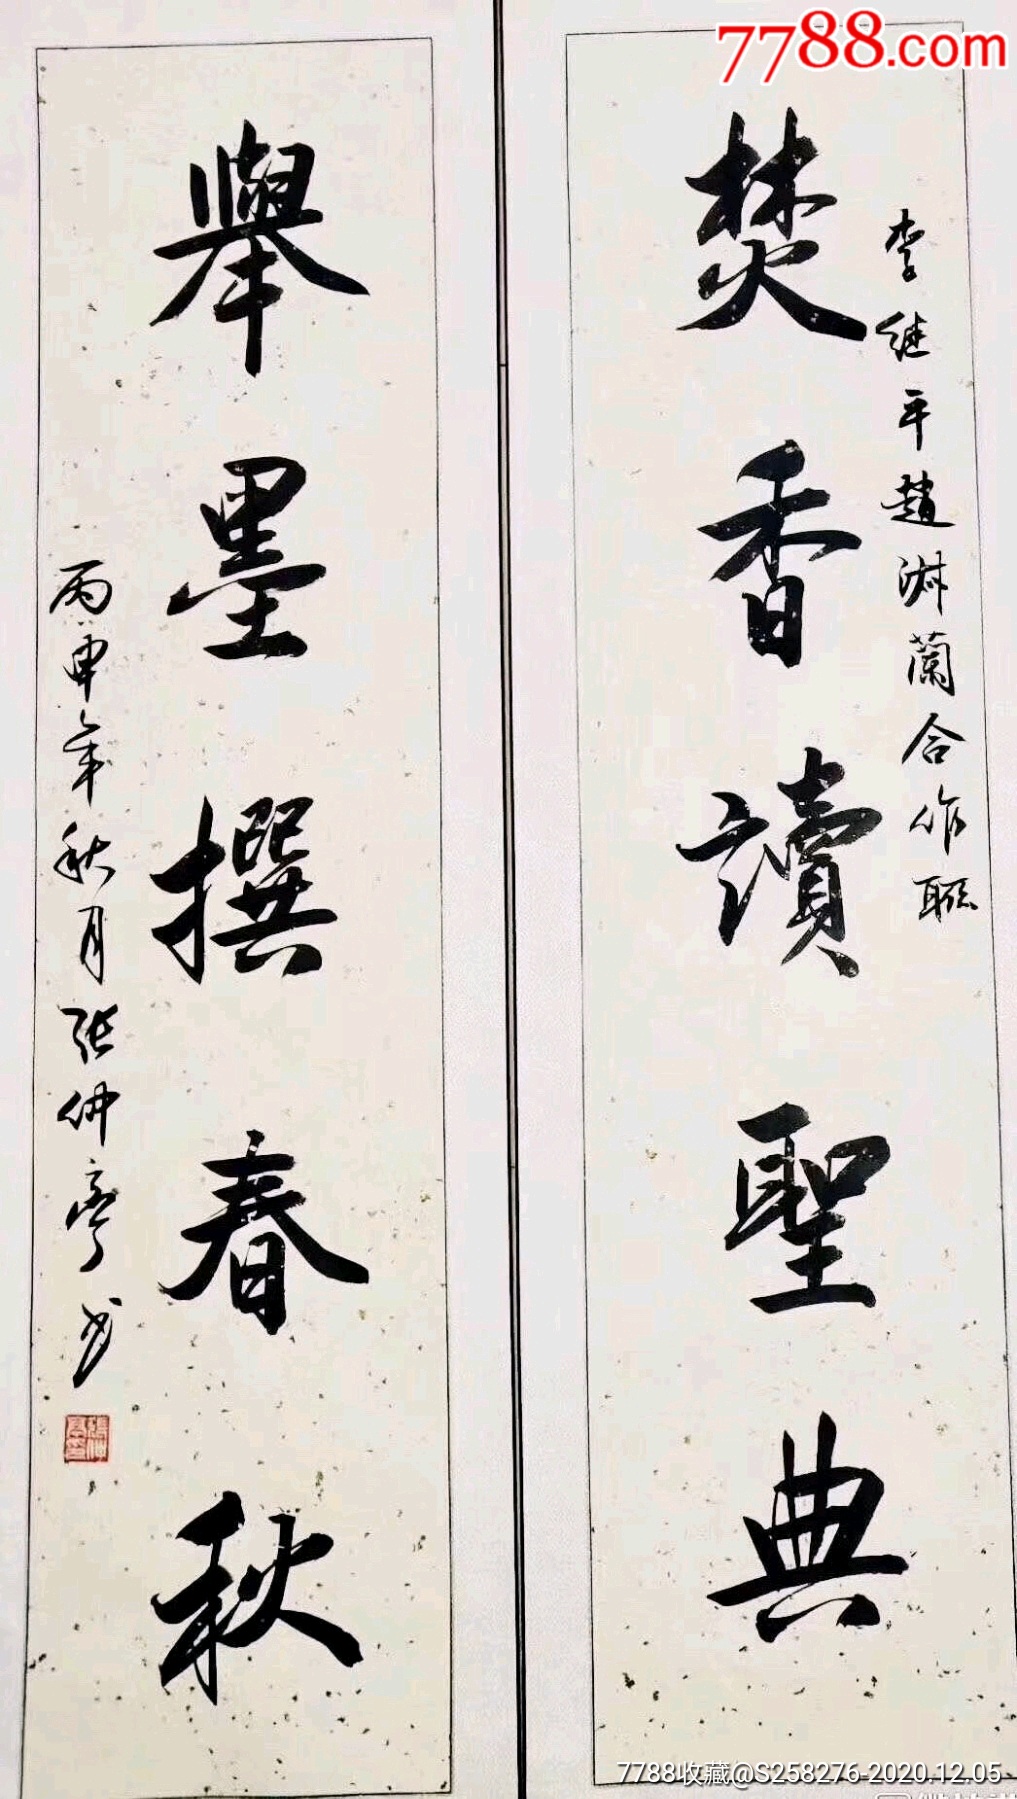 7788.com
焚香讀聖典
李继平趙淑蘭合作联
舉墨撰春秋
丙申年秋月張仲亭书
7788收藏@S258276-2020.12.05